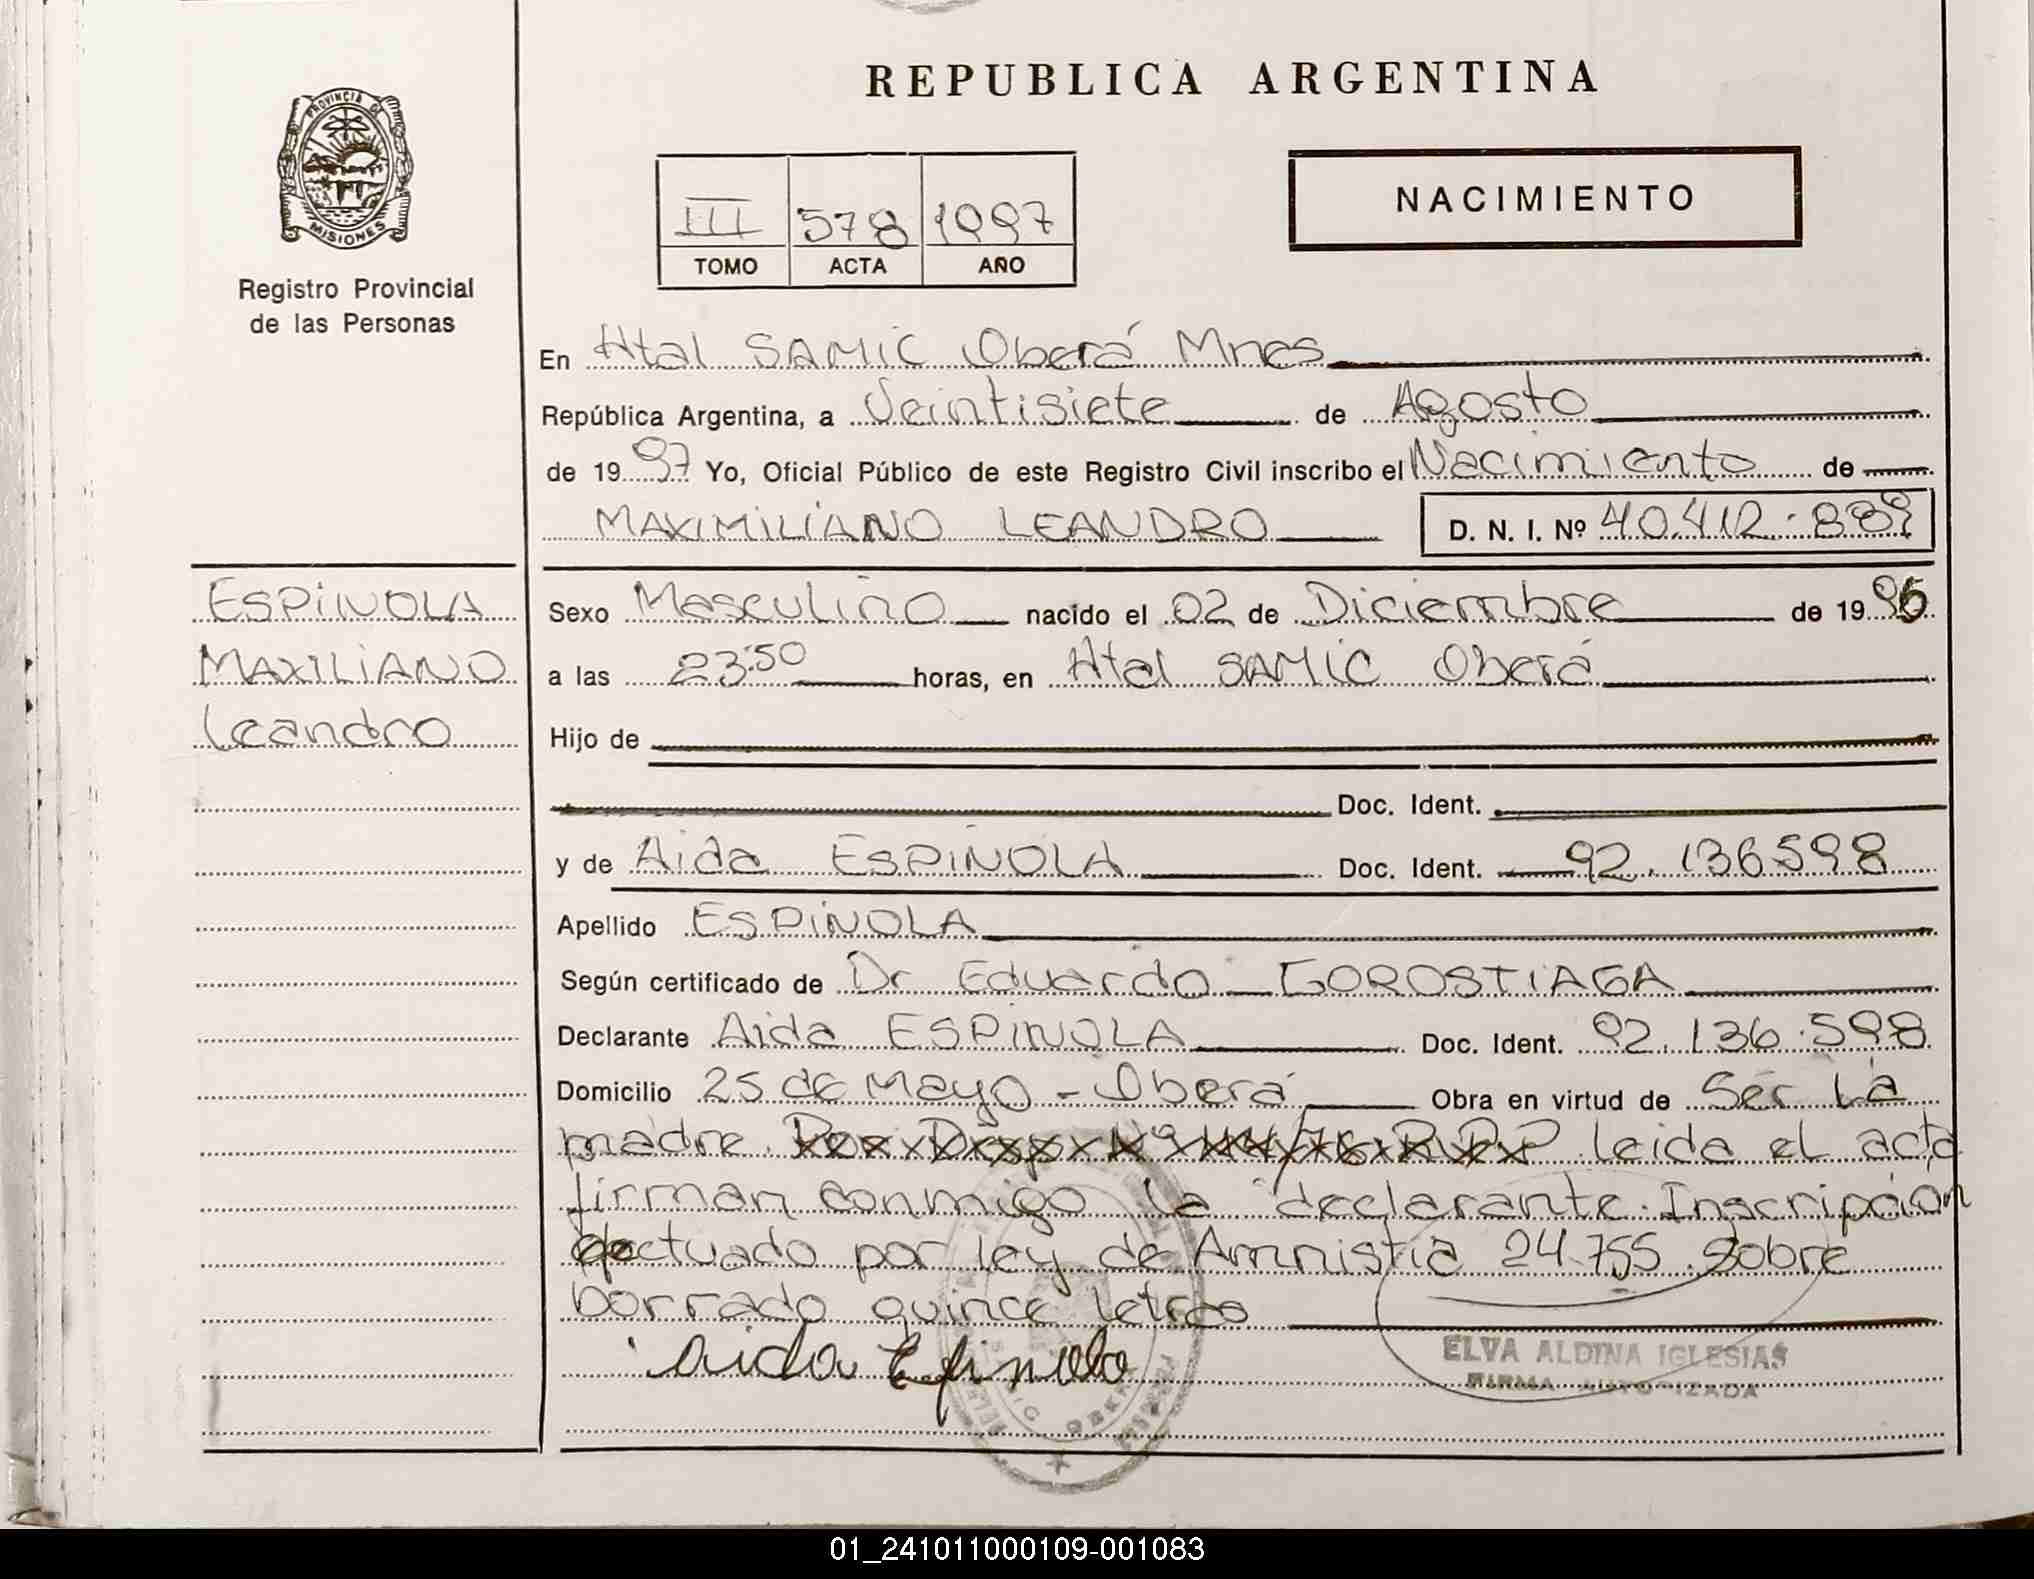 REPUBLICA ARGENTINA
PROVINCIA DE MISIONES
Registro Provincial
de las Personas
III 578 1997
TOMO ACTA AÑO
NACIMIENTO
En Htal SAMIC Oberá Mnes
República Argentina, a Veintisiete de Agosto
de 1997 Yo, Oficial Público de este Registro Civil inscribo el Nacimiento de
MAXIMILIANO LEANDRO D. N. I. Nº 40.412.889
ESPINOLA
MAXILIANO
Leandro
Sexo Masculino nacido el 02 de Diciembre de 1996
a las 23:50 horas, en Htal SAMIC Oberá
Hijo de
Doc. Ident.
y de Aida ESPINOLA Doc. Ident. 92.136598
Apellido ESPINOLA
Según certificado de Dr Eduardo GOROSTIAGA
Declarante Aida ESPINOLA Doc. Ident. 92.136.598
Domicilio 25 de Mayo - Oberá Obra en virtud de Ser La
madre Por Disp Nº /76 R.P.P leida el acta
firman conmigo la declarante. Inscripcion
efectuado por ley de Amnistia 24.755 Sobre
borrado quince letras
Aida Espinola
ELVA ALDINA IGLESIAS
FIRMA AUTORIZADA
01_241011000109-001083